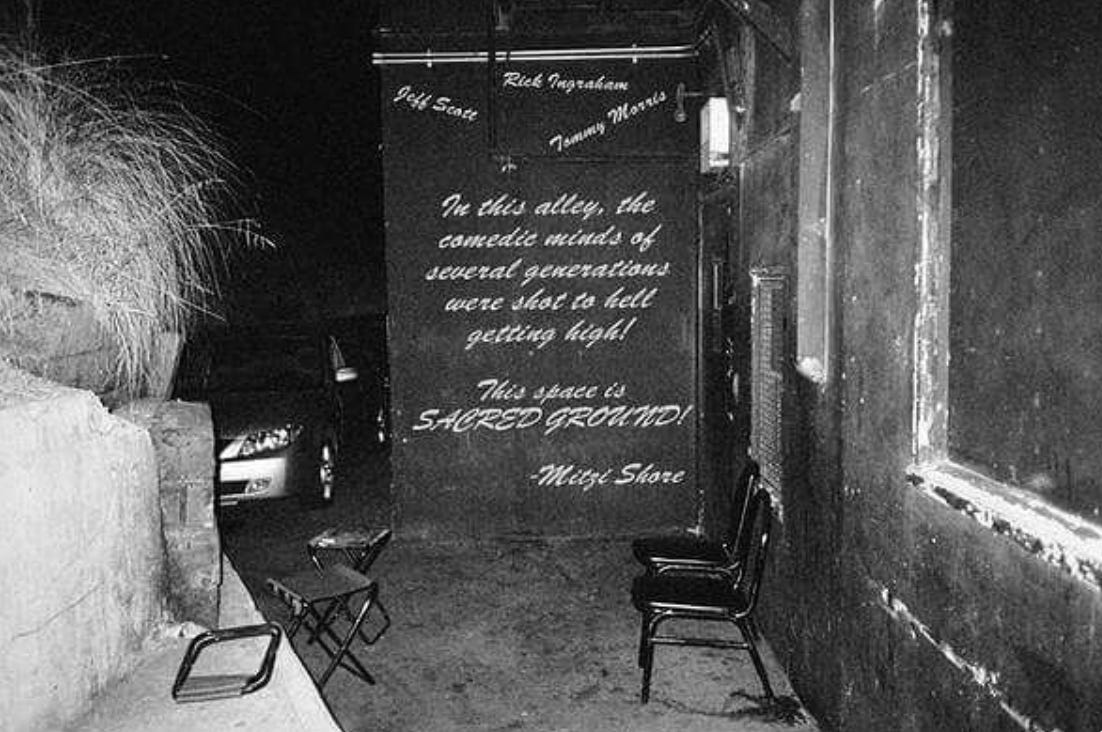 Rick Ingraham
Jeff Scott
Tommy Morris
In this alley, the
comedic minds of
several generations
were shot to hell
getting high!
This space is
SACRED GROUND!
-Mitzi Shore